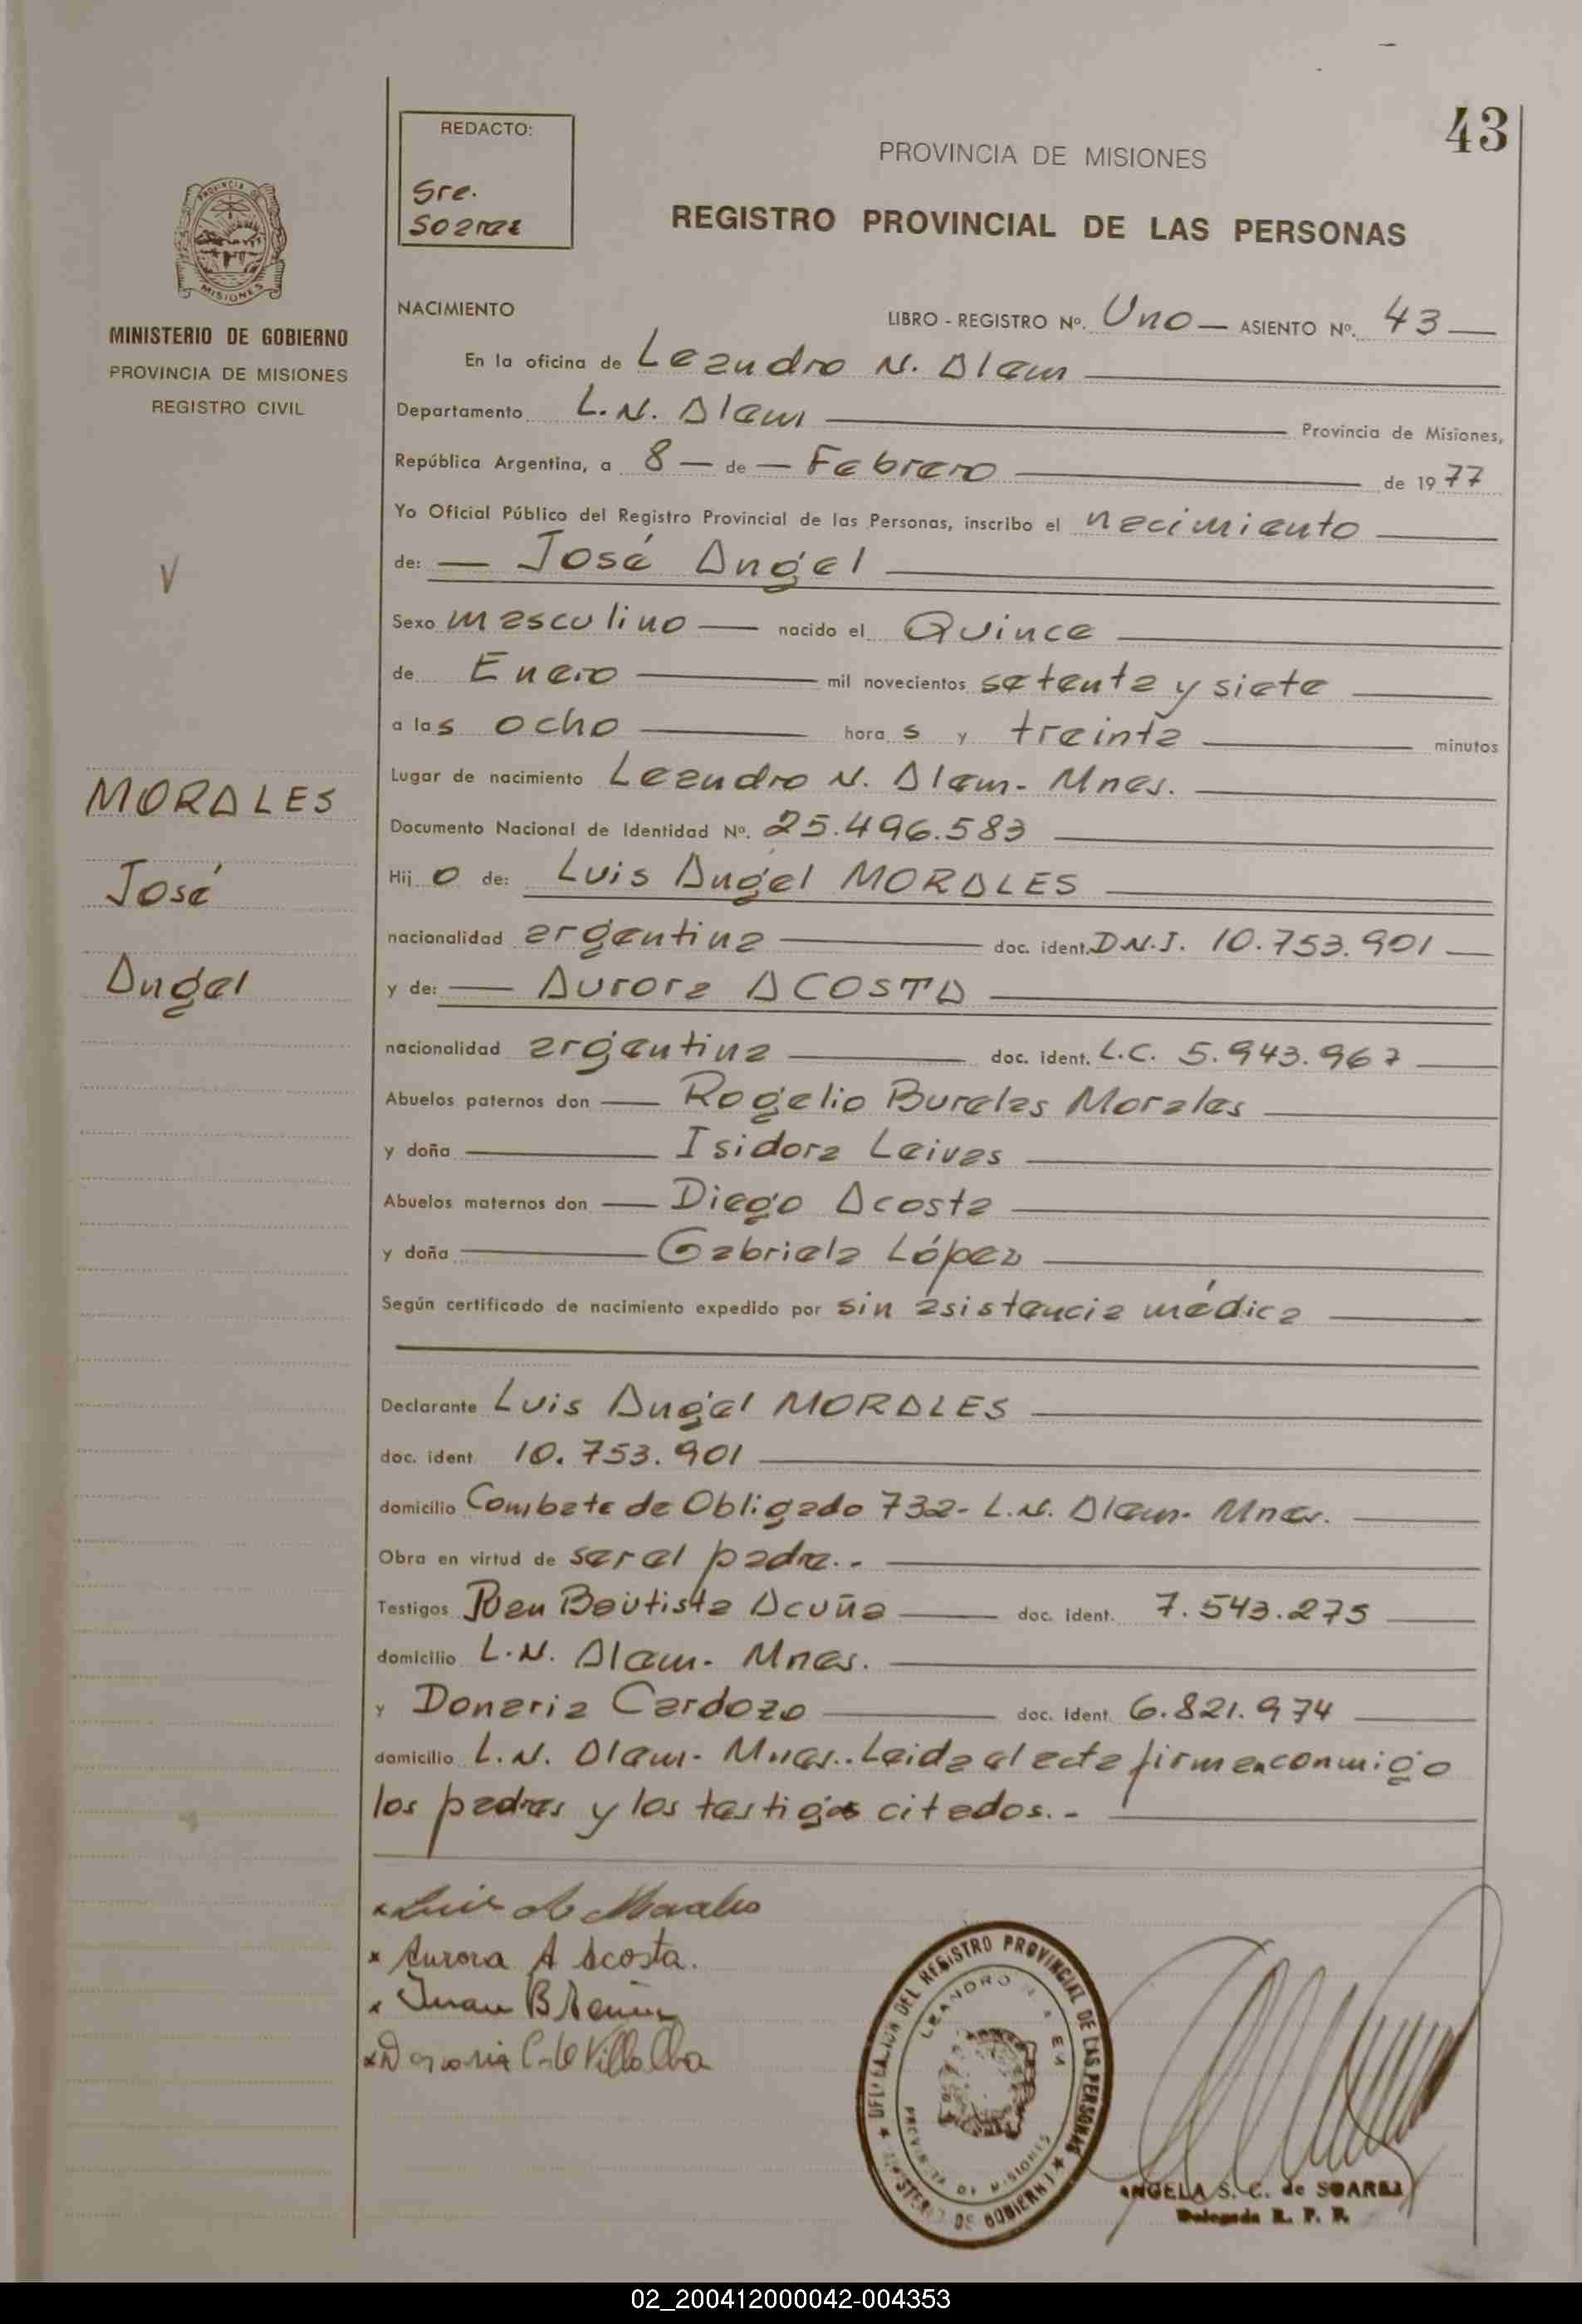 43
REDACTO:
Sra.
Soarez
PROVINCIA DE MISIONES
REGISTRO PROVINCIAL DE LAS PERSONAS
PROVINCIA DE
MISIONES
MINISTERIO DE GOBIERNO
PROVINCIA DE MISIONES
REGISTRO CIVIL
MORALES
José
Angel
NACIMIENTO
LIBRO - REGISTRO Nº. Uno — ASIENTO Nº. 43 —
En la oficina de Leandro N. Alem
Departamento L.N. Alem Provincia de Misiones,
República Argentina, a 8 — de — Febrero de 1977
Yo Oficial Público del Registro Provincial de las Personas, inscribo el nacimiento
de: — José Angel
Sexo masculino — nacido el Quince
de Enero mil novecientos setenta y siete
a las ocho horas y treinta minutos
Lugar de nacimiento Leandro N. Alem - Mnes.
Documento Nacional de Identidad Nº. 25.496.583
Hijo de: Luis Angel MORALES
nacionalidad argentina doc. ident. D.N.I. 10.753.901
y de: — Aurora ACOSTA
nacionalidad argentina doc. ident. L.C. 5.943.967
Abuelos paternos don — Rogelio Morales
y doña Isidora Leivas
Abuelos maternos don — Diego Acosta
y doña Gabriela López
Según certificado de nacimiento expedido por sin asistencia médica
Declarante Luis Angel MORALES
doc. ident 10.753.901
domicilio Combate de Obligado 732 - L.N. Alem - Mnes.
Obra en virtud de ser el padre.-
Testigos Juan Bautista Acuña doc. ident. 7.543.275
domicilio L.N. Alem - Mnes.
y Donaria Cardozo doc. ident 6.821.974
domicilio L.N. Alem - Mnes.. Leida el acta firman conmigo
los padres y los testigos citados.-
x Luis A Morales
x Aurora A Acosta.
x Juan B Acuña
x Donaria C. de Villalba
DELEGACION DEL REGISTRO PROVINCIAL DE LAS PERSONAS
MINISTERIO DE GOBIERNO
LEANDRO N. ALEM
PROVINCIA DE MISIONES
ANGELA S. C. de SOAREZ
Delegada R. P. P.
02_200412000042-004353